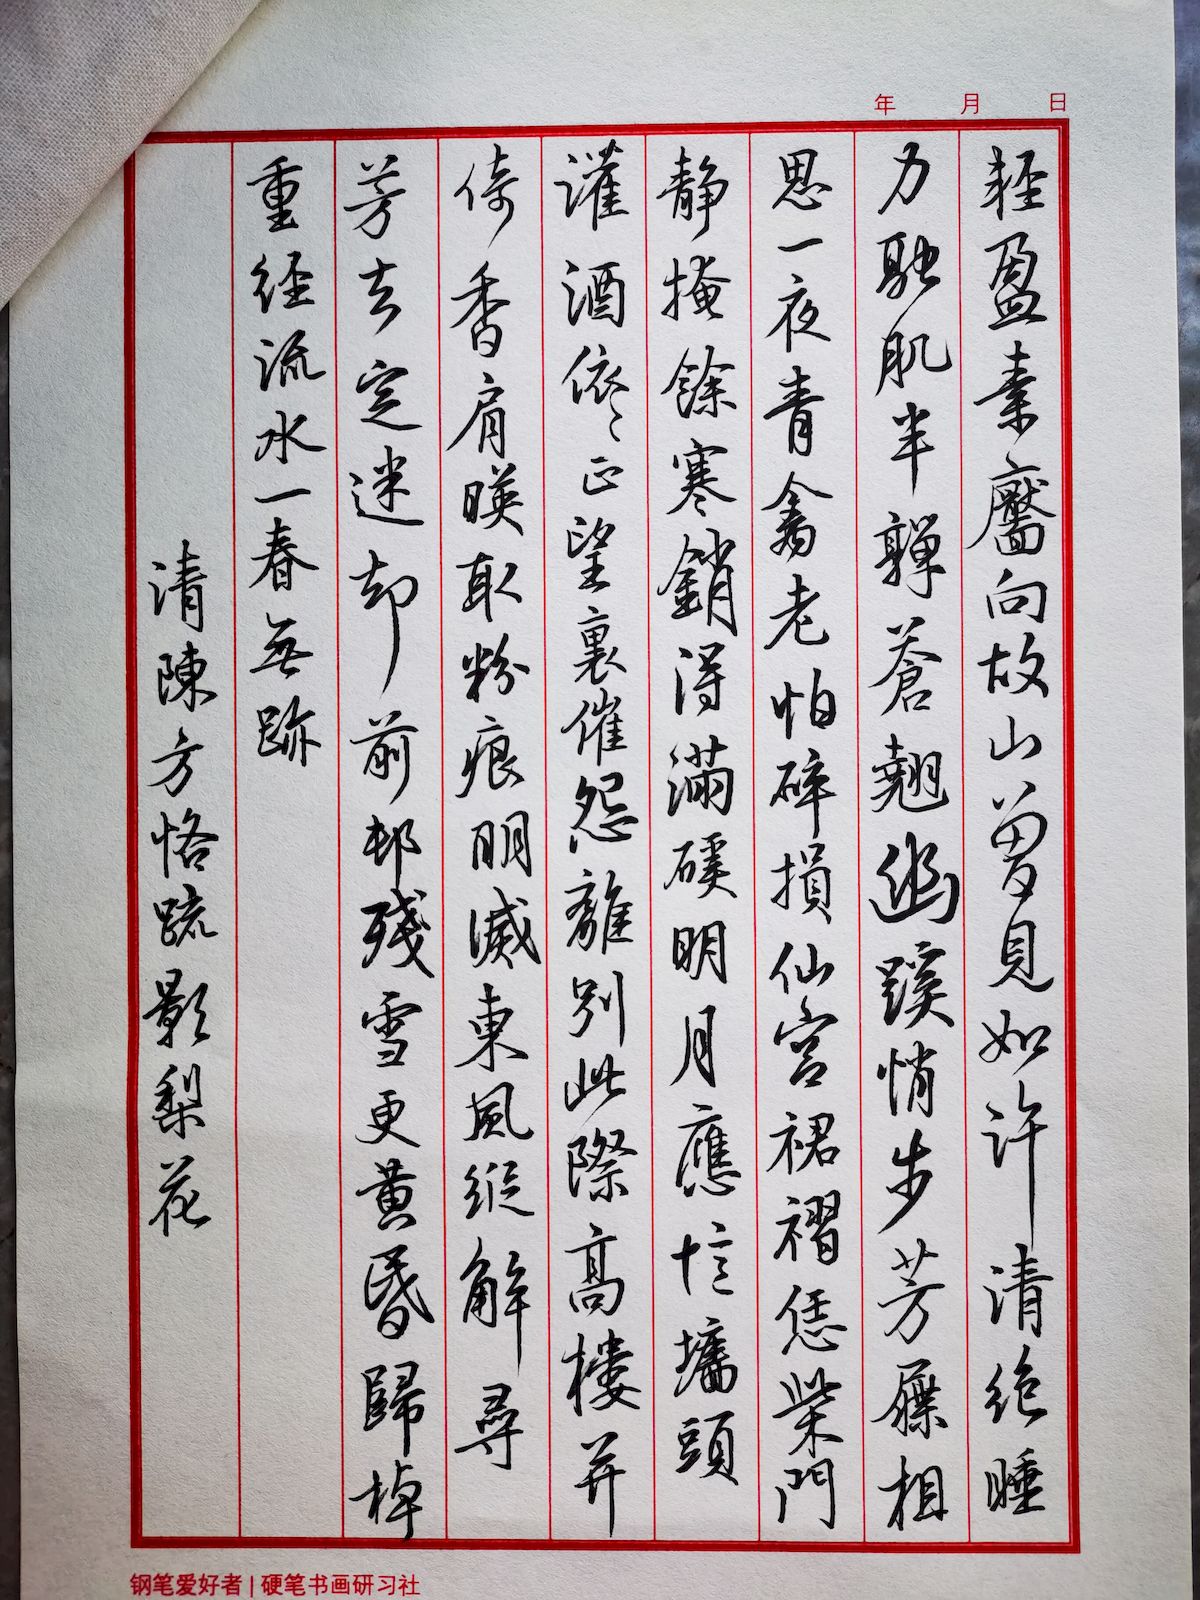 年 月 日
輕盈素靨向故山曾見如許清絶睡
力融肌半嚲蒼翹幽蹊悄步芳屧相
思一夜青禽老怕碎損仙宮裙褶恁柴門
静掩餘寒銷得滿磎明月應忆墻頭
灌酒依〻正望裏催怨離別此際高樓并
倚香肩暎取粉痕明滅東風縱解尋
芳去定迷却前邨殘雪更黄昏歸棹
重經流水一春無跡
清陳方恪疏影梨花
钢笔爱好者 | 硬笔书画研习社